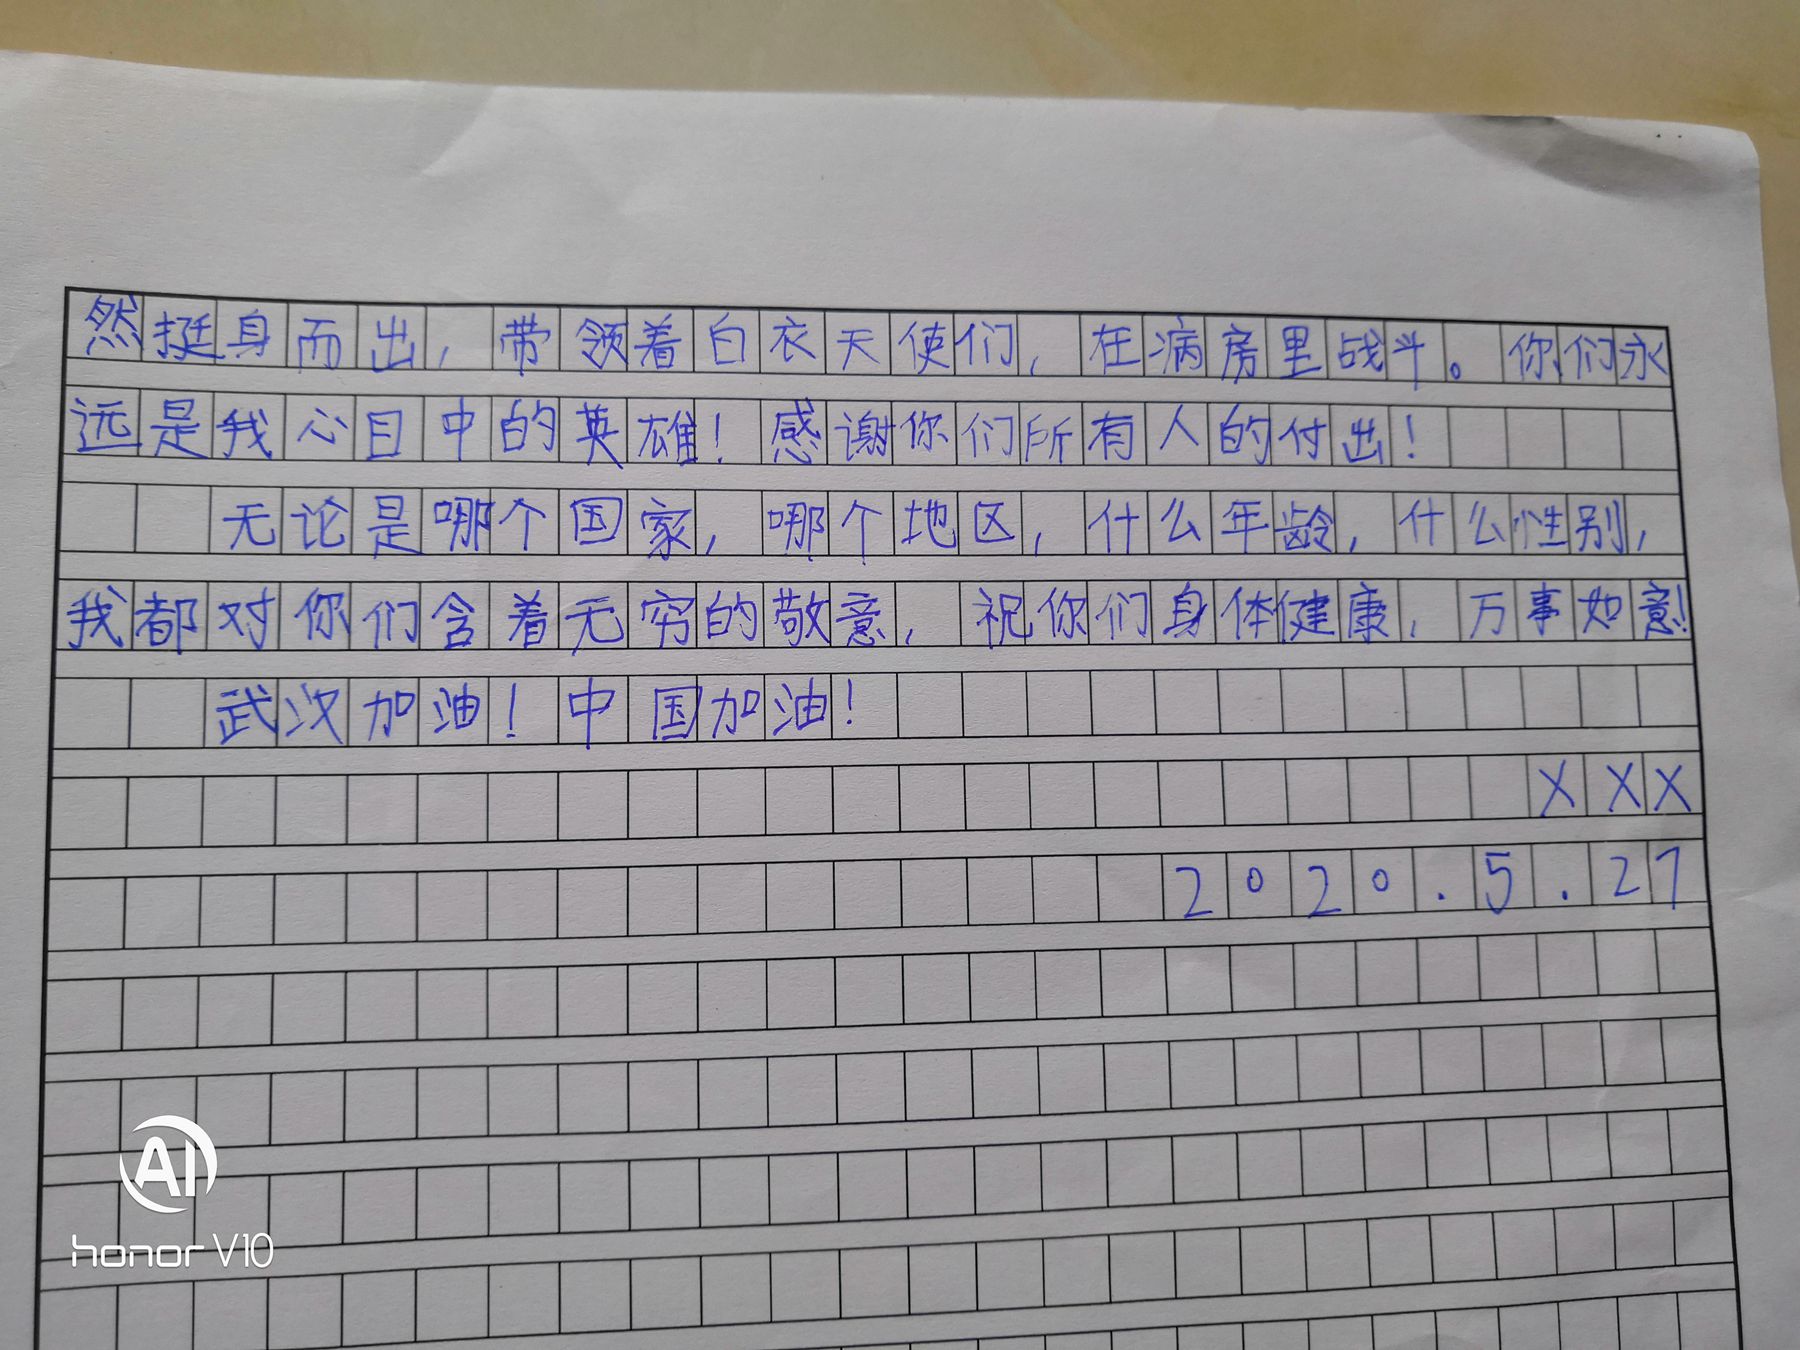 然挺身而出，带领着白衣天使们，在病房里战斗。你们永
远是我心目中的英雄！感谢你们所有人的付出！
无论是哪个国家，哪个地区，什么年龄，什么性别，
我都对你们含着无穷的敬意，祝你们身体健康，万事如意！
武汉加油！中国加油！
XXX
2020.5.27
AI
honor V10